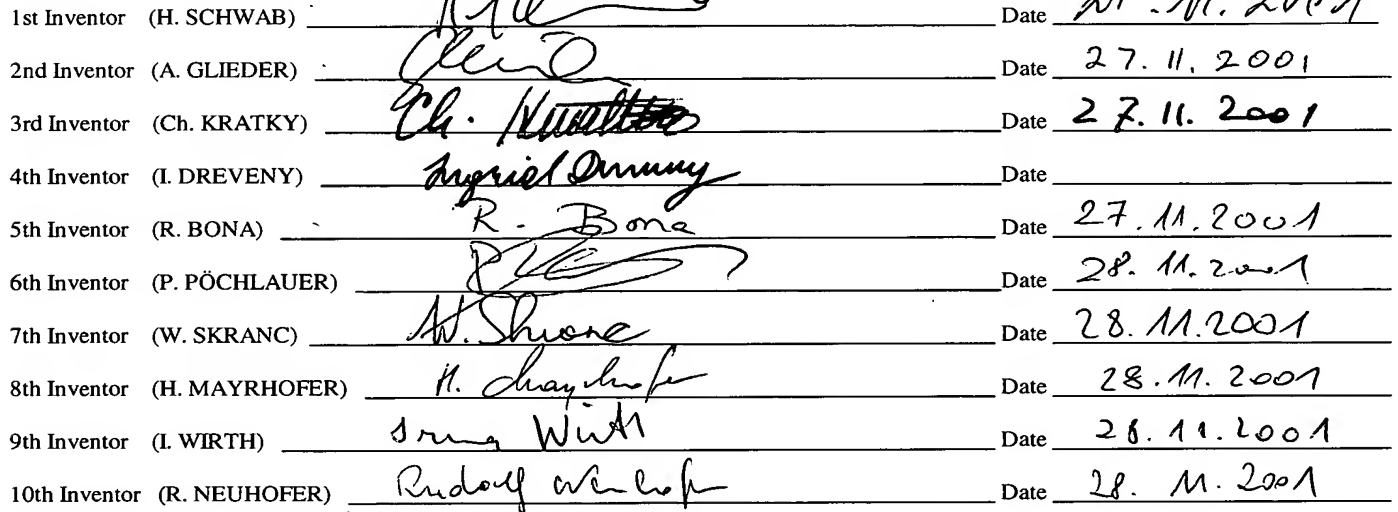 1st Inventor (H. SCHWAB) Date 11. 2001
2nd Inventor (A. GLIEDER) Date 27. 11. 2001
3rd Inventor (Ch. KRATKY) Ch. Date 27. 11. 2001
4th Inventor (I. DREVENY) Ingrid Dreveny Date
5th Inventor (R. BONA) R. Bona Date 27.11.2001
6th Inventor (P. PÖCHLAUER) Date 28. 11. 2001
7th Inventor (W. SKRANC) W. Skranc Date 28.11.2001
8th Inventor (H. MAYRHOFER) H. Mayrhofer Date 28.11.2001
9th Inventor (I. WIRTH) Irma Wirth Date 28.11.2001
10th Inventor (R. NEUHOFER) Rudolf Neuhofer Date 28. 11. 2001